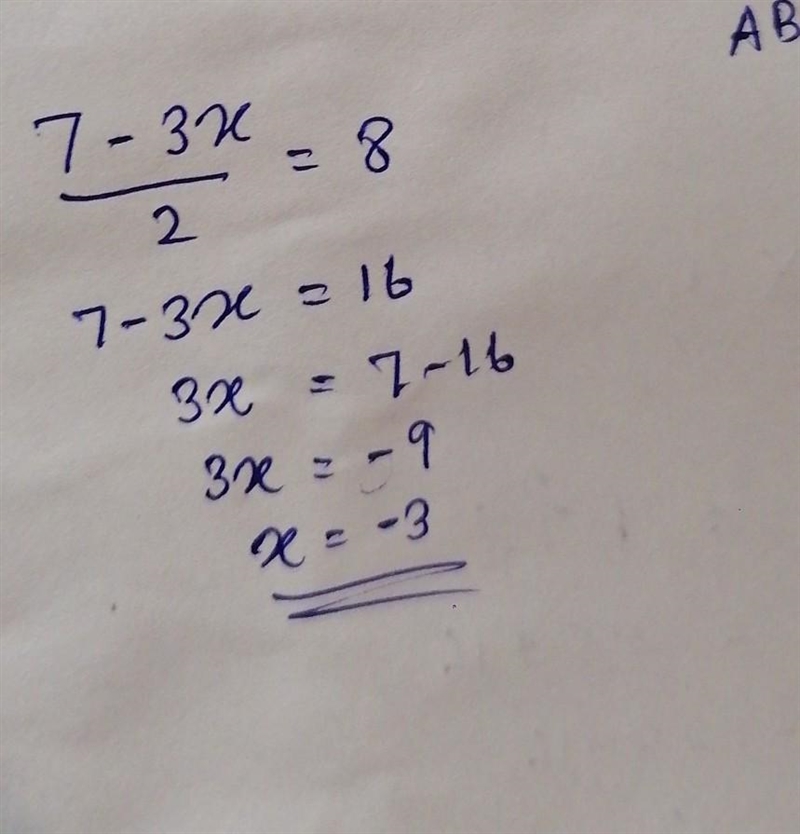 AB
7 - 3x / 2 = 8
7 - 3x = 16
3x = 7 - 16
3x = -9
x = -3